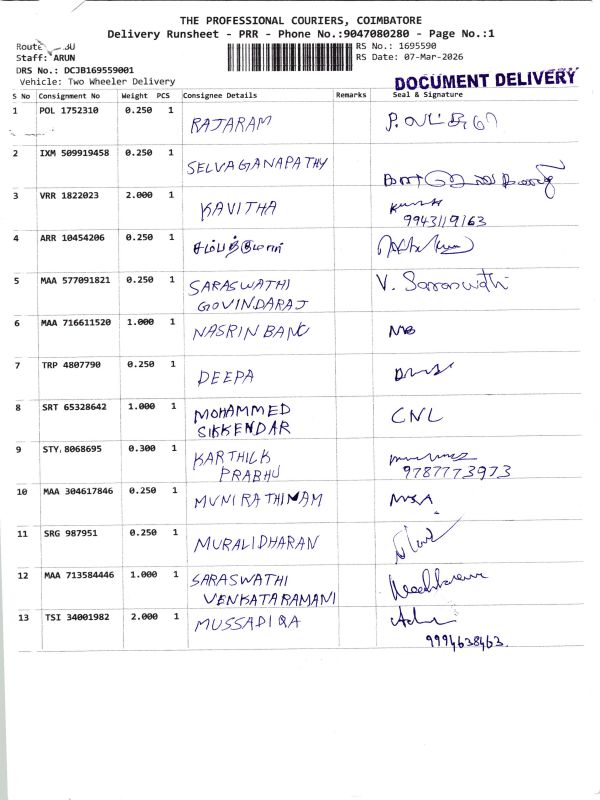 THE PROFESSIONAL COURIERS, COIMBATORE
Delivery Runsheet - PRR - Phone No.:9047080280 - Page No.:1
RS No.: 1695590
Staff: ARUN
RS Date: 07-Mar-2026
DRS No.: DCJB169559001
Vehicle: Two Wheeler Delivery
DOCUMENT DELIVERY
S No Consignment No Weight PCS Consignee Details Remarks Seal & Signature
1 POL 1752310 0.250 1 RAJARAM
2 IXM 509919458 0.250 1 SELVAGANAPATHY
3 VRR 1822023 2.000 1 KAVITHA
9943119163
4 ARR 10454206 0.250 1
5 MAA 577091821 0.250 1 SARASWATHI V. Saraswathi
GOVINDARAJ
6 MAA 716611520 1.000 1 NASRIN BANU NB
7 TRP 4807790 0.250 1 DEEPA
8 SRT 65328642 1.000 1 MOHAMMED CNL
SIKKENDAR
9 STY 8068695 0.300 1 KARTHICK
PRABHU 9787773973
10 MAA 304617846 0.250 1 MUNIRATHINAM
11 SRG 987951 0.250 1 MURALIDHARAN
12 MAA 713584446 1.000 1 SARASWATHI
VENKATARAMANI
13 TSI 34001982 2.000 1 MUSSADIQA
9994638463.